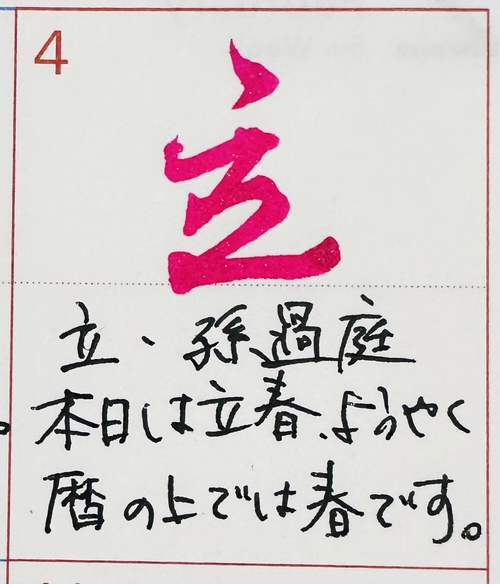 4
立
立、孫過庭
本日は立春、ようやく
暦の上では春です。